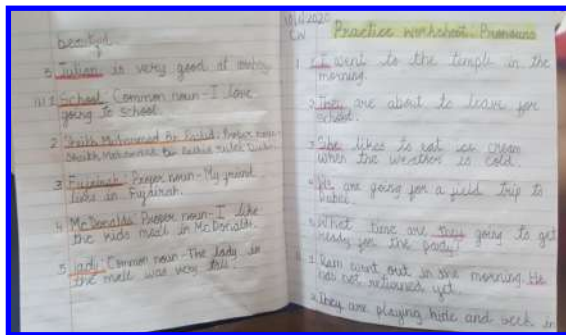 beautiful.
5. Julian is very good at
III 1. School: Common noun - I love
going to school.
2. Sheikh Mohammed Bin Rashid: Proper noun-
Sheikh Mohammed Bin Rashid rules Dubai.
3. Fujairah: Proper noun - My grand
lives in Fujairah.
4. McDonalds: Proper noun - I like
the kids meal in McDonalds.
5. lady: Common noun - The lady in
the mall was very tall.
2020
CW Practice worksheet: Pronouns
1. 1. I went to the temple in the
morning.
2. They are about to leave for
school.
3. She likes to eat ice cream
when the weather is cold.
4. We are going for a field trip to
5. What time are they going to get
ready for the party?
II. 1. Ram went out in the morning. He
has not returned yet.
2. They are playing hide and seek in